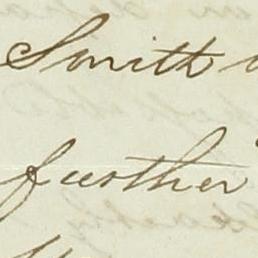 Smith
further